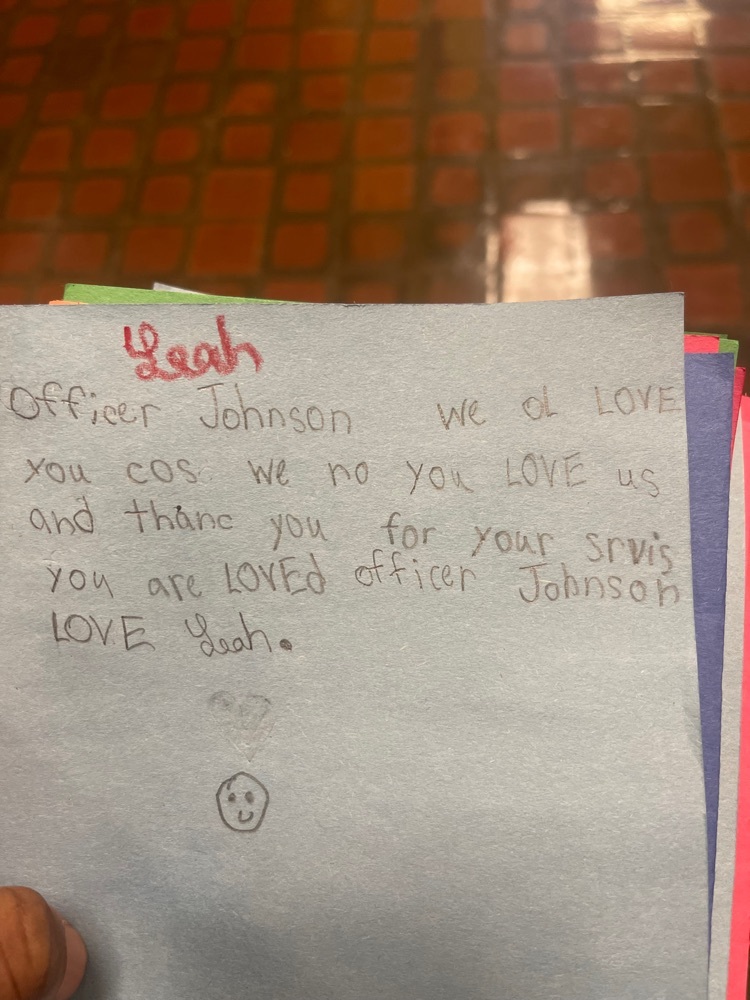 Leah
Officer Johnson we ol LOVE
you cos we no you LOVE us
and thanc you for your srvis
you are LOVEd officer Johnson
LOVE Leah.